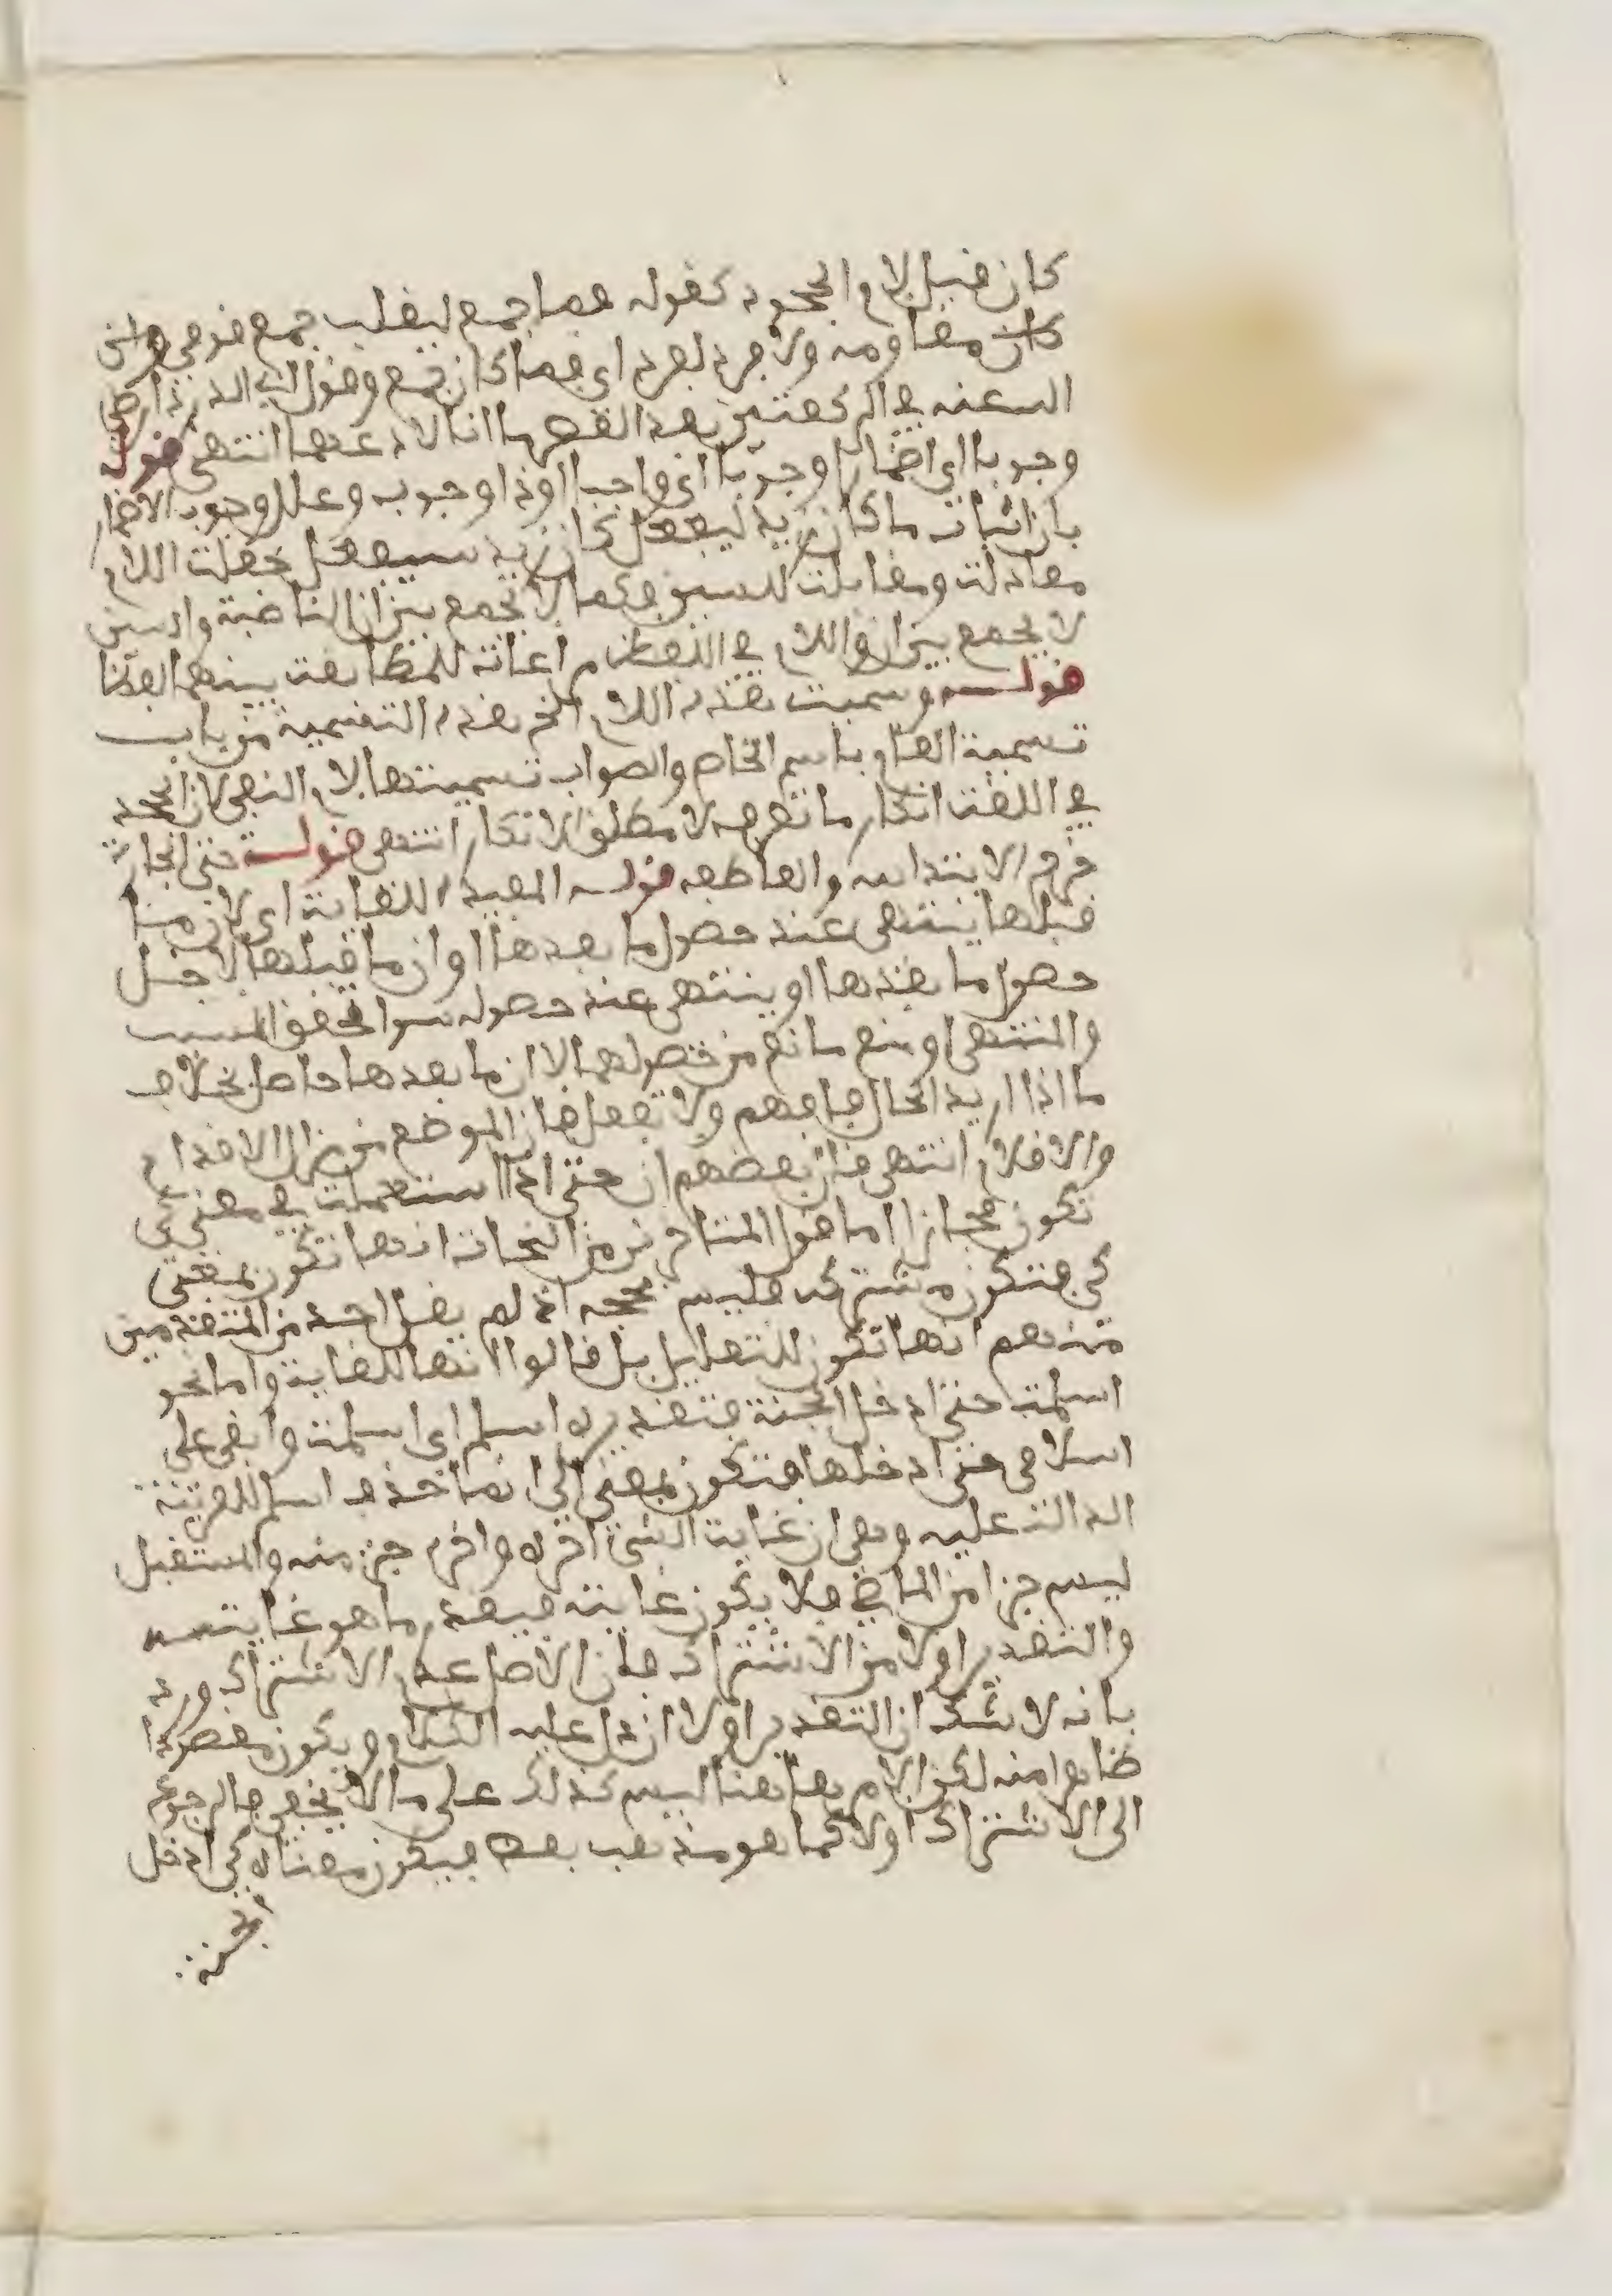 كان قبل لام الجحود كقوله فما جمع ليغلب جمع قومي وان
كان مقاومه ولا فرد لفرد اي فما كان جمع وقول ابي الدرداء رضي
الله عنه في الركعتين بعد العصر ما انا لادعهما انتهى قوله
وجوبا اي اضمارا وجوبا اي واجبا او ذا وجوب وعلل وجوب الاضمار
بان اثبات ما كان زيد ليفعل كان زيد سيفعل جعلت اللام
معادلت ومقابلت للسين فكما لا يجمع بين ان الناصبة والسين
لا يجمع بين ان واللام في اللفظ مراعاة للمطابقت بينهما لفظا
قوله وسميت هذه اللام الخ هذه التسمية من باب
تسمية العام باسم الخاص والصواب تسميتها لام النفي لان الجحد
في اللغت انكار ما تعرفه لا مطلق الانكار انتهى قوله حتى الجارة
خرج الابتدائيه والعاطفه قوله المفيدة للغاية اي لان ما
قبلها ينتهى عند حصول ما بعدها او ان ما قبلها لاجل
حصول ما بعدها او ينتهى عند حصوله سوا تحقق المسبب
والمنتهى او منع مانع من حصولهما لا ان ما بعدها حاصل بخلاف
ما اذا اريد الحال فافهم ولا تغفل فان الموضع من مزال الاقدام
والاقلام انتهى قال بعضهم ان حتى اذا استعملت في معنى كي
تكون مجازا اما قول المتاخرين من النحاة انها تكون بمعنى
كي فتكون مشتركه فليس بحجه اذ لم يقل احد من المتقدمين
منهم انها تكون للتعليل بل قالوا انها للغاية واما نحو
اسلمت حتى ادخل الجنة فتقديره اسلم اي اسلمت وابقى على
اسلامي حتى ادخلها فتكون بمعنى الى انما حذف اسلم للقرينة
الدالت عليه وهي ان غايت الشئ اخره واخره جزء منه والمستقبل
ليس جزا من الماضي فلا يكون غايته فيقدر ما هو غايته
والتقدير اولا من الاشتراك فان الاصل عدم الاشتراك ورد
بانه لا شك ان التقدير اولا ان دل عليه الكلام ويكون مقصودا
ظاهرا منه لكن الامر هاهنا ليس كذلك على ما لا يخفى فالرجوع
الى الاشتراك اولا كما هو مذهب بعض فيكون معناه كي ادخل
الجنة